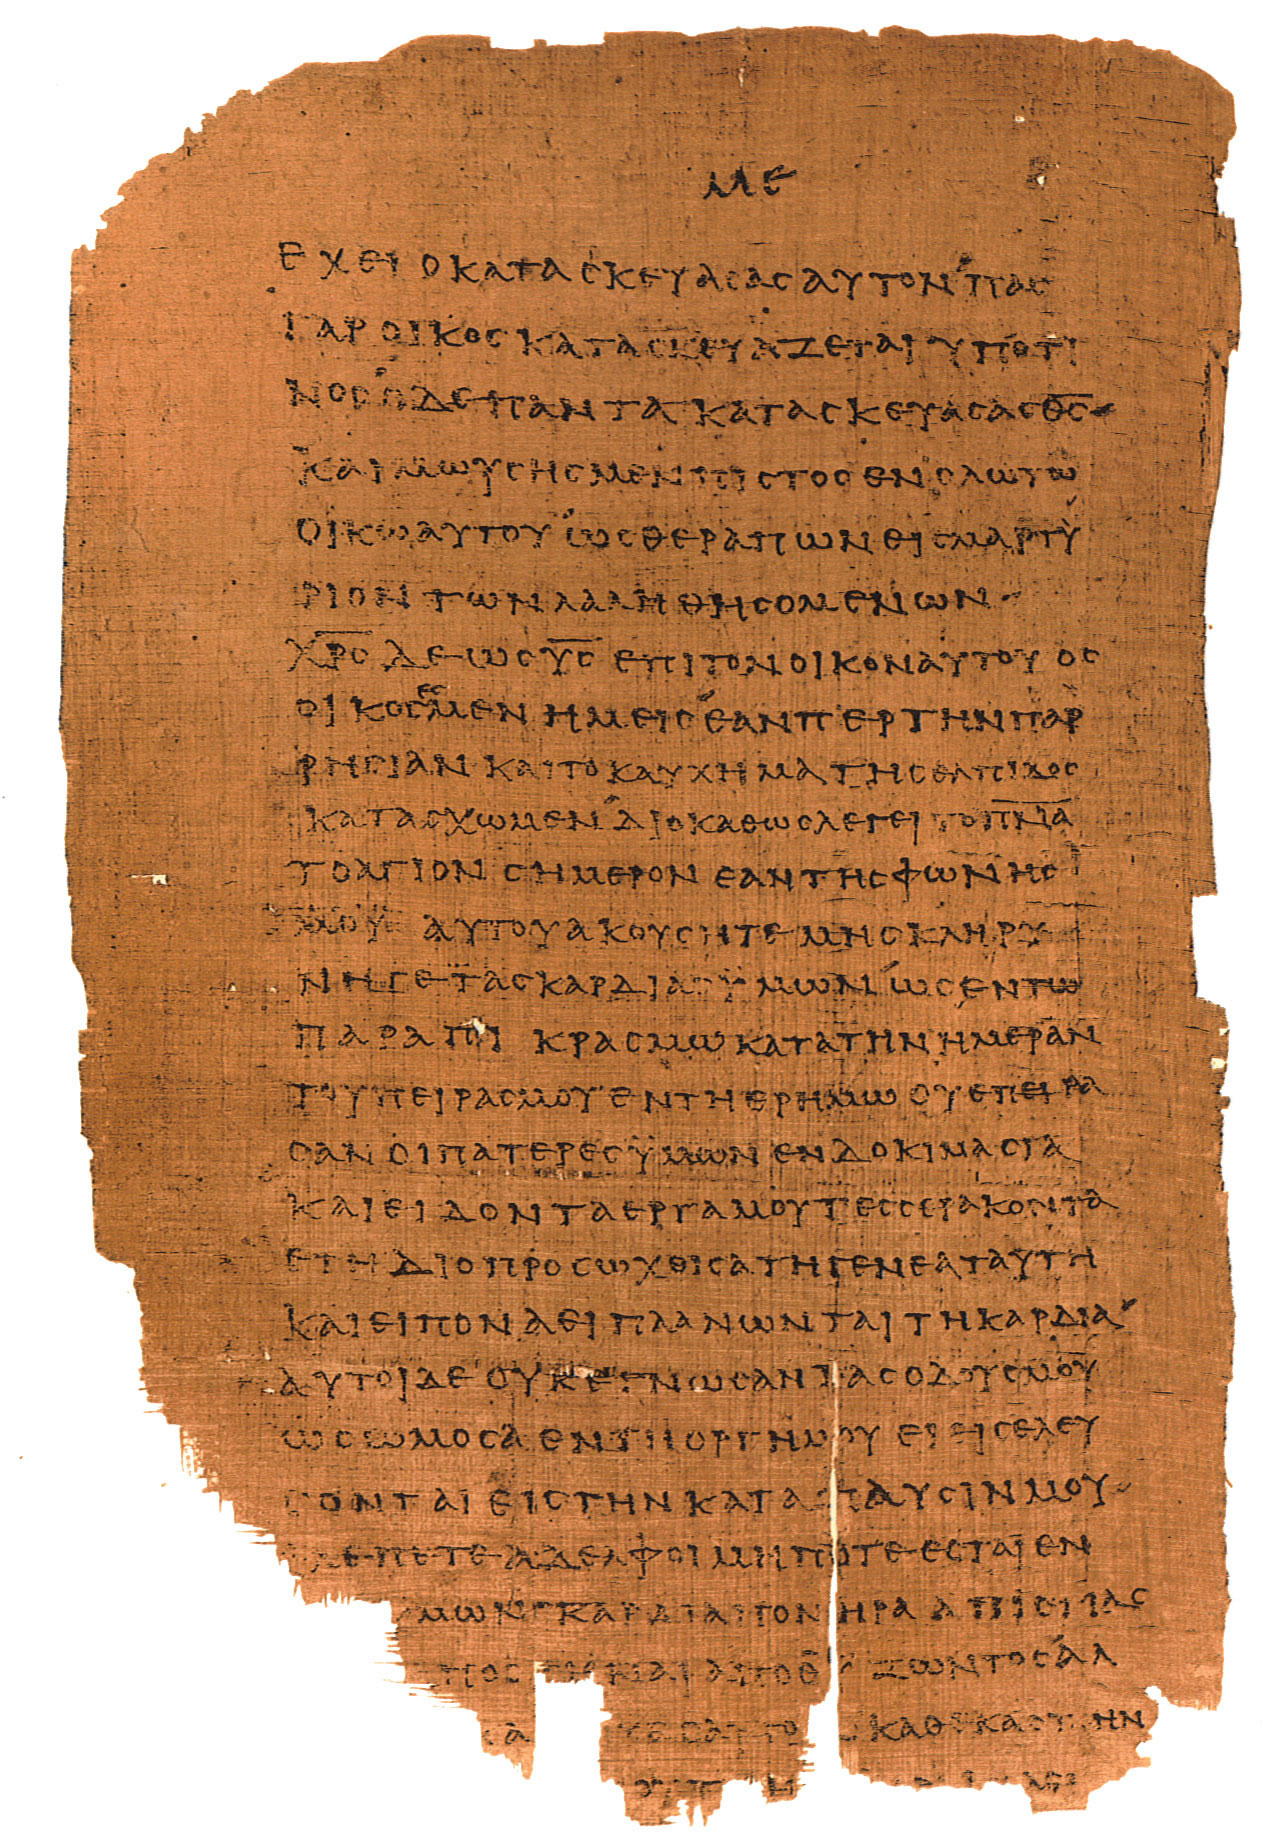 ΜΕ
ΕΧΕΙ Ο ΚΑΤΑΣΚΕΥΑΣΑΣ ΑΥΤΟΝ ΠΑΣ
ΓΑΡ ΟΙΚΟΣ ΚΑΤΑΣΚΕΥΑΖΕΤΑΙ ΥΠΟ ΤΙ
ΝΟΣ Ο ΔΕ ΠΑΝΤΑ ΚΑΤΑΣΚΕΥΑΣΑΣ Θ̅Σ̅
ΚΑΙ ΜΩΥΣΗΣ ΜΕΝ ΠΙΣΤΟΣ ΕΝ ΟΛΩ ΤΩ
ΟΙΚΩ ΑΥΤΟΥ ΩΣ ΘΕΡΑΠΩΝ ΕΙΣ ΜΑΡΤΥ
ΡΙΟΝ ΤΩΝ ΛΑΛΗΘΗΣΟΜΕΝΩΝ
Χ̅Ρ̅Σ̅ ΔΕ ΩΣ Υ̅Σ̅ ΕΠΙ ΤΟΝ ΟΙΚΟΝ ΑΥΤΟΥ ΟΣ
ΟΙΚΟΣ ΕΣΜΕΝ ΗΜΕΙΣ ΕΑΝΠΕΡ ΤΗΝ ΠΑΡ
ΡΗΣΙΑΝ ΚΑΙ ΤΟ ΚΑΥΧΗΜΑ ΤΗΣ ΕΛΠΙΔΟΣ
ΚΑΤΑΣΧΩΜΕΝ ΔΙΟ ΚΑΘΩΣ ΛΕΓΕΙ ΤΟ Π̅Ν̅Α̅
ΤΟ ΑΓΙΟΝ ΣΗΜΕΡΟΝ ΕΑΝ ΤΗΣ ΦΩΝΗΣ
ΜΟΥ ΑΥΤΟΥ ΑΚΟΥΣΗΤΕ ΜΗ ΣΚΛΗΡΥ
ΝΗΤΕ ΤΑΣ ΚΑΡΔΙΑΣ ΥΜΩΝ ΩΣ ΕΝ ΤΩ
ΠΑΡΑΠΙΚΡΑΣΜΩ ΚΑΤΑ ΤΗΝ ΗΜΕΡΑΝ
ΤΟΥ ΠΕΙΡΑΣΜΟΥ ΕΝ ΤΗ ΕΡΗΜΩ ΟΥ ΕΠΕΙΡΑ
ΣΑΝ ΟΙ ΠΑΤΕΡΕΣ ΥΜΩΝ ΕΝ ΔΟΚΙΜΑΣΙΑ
ΚΑΙ ΕΙΔΟΝ ΤΑ ΕΡΓΑ ΜΟΥ ΤΕΣΣΕΡΑΚΟΝΤΑ
ΕΤΗ ΔΙΟ ΠΡΟΣΩΧΘΙΣΑ ΤΗ ΓΕΝΕΑ ΤΑΥΤΗ
ΚΑΙ ΕΙΠΟΝ ΑΕΙ ΠΛΑΝΩΝΤΑΙ ΤΗ ΚΑΡΔΙΑ
ΑΥΤΟΙ ΔΕ ΟΥΚ ΕΓΝΩΣΑΝ ΤΑΣ ΟΔΟΥΣ ΜΟΥ
ΩΣ ΩΜΟΣΑ ΕΝ ΤΗ ΟΡΓΗ ΜΟΥ ΕΙ ΕΙΣΕΛΕΥ
ΣΟΝΤΑΙ ΕΙΣ ΤΗΝ ΚΑΤΑΠΑΥΣΙΝ ΜΟΥ
ΒΛΕΠΕΤΕ ΑΔΕΛΦΟΙ ΜΗΠΟΤΕ ΕΣΤΑΙ ΕΝ
ΜΩΝ ΚΑΡΔΙΑ ΠΟΝΗΡΑ ΑΠΙΣΤΙΑΣ
ΑΠΟ Θ̅Υ̅ ΖΩΝΤΟΣ ΑΛ
ΚΑΘ ΕΚΑΣΤΗΝ